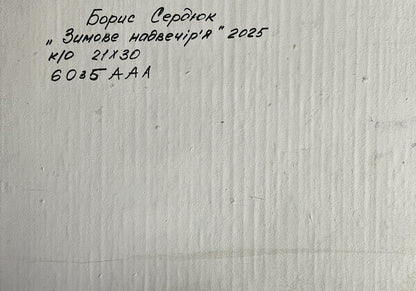 Борис Сердюк
„Зимове надвечір'я" 2025
к/о 21x30
6035 ААА